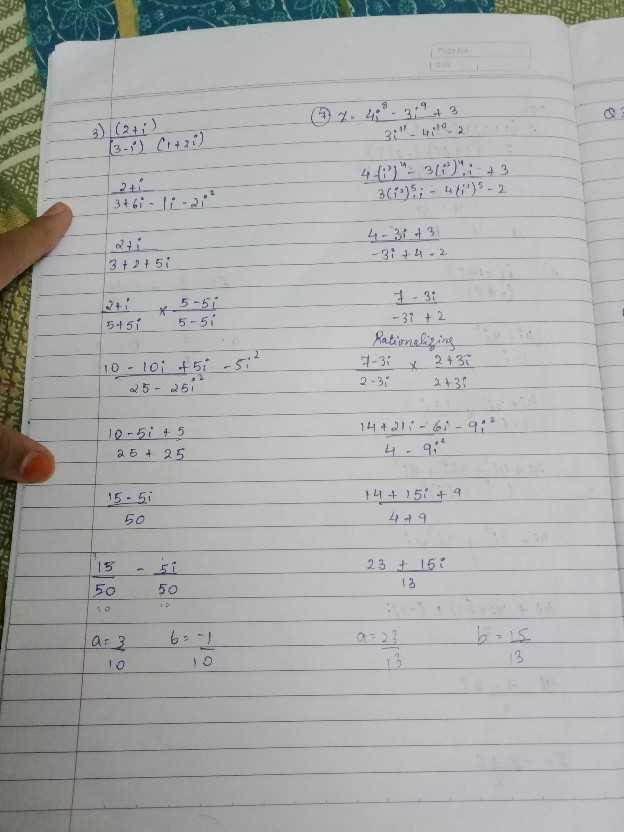 Page No.
Date
3) (2+i)
(3-i) (1+2i)
2+i
3+6i - 1i - 2i²
2+i
3+2+5i
2+i × 5-5i
5+5i 5-5i
10 - 10i + 5i - 5i²
25 - 25i²
10-5i + 5
25 + 25
15 - 5i
50
15 - 5i
50 50
10 10
a = 3 b = -1
10 10
z = 4i⁸ - 3i⁹ + 3
3i¹¹ - 4i¹⁰ - 2
4(i²)⁴ - 3(i²)⁴.i + 3
3(i²)⁵.i - 4(i²)⁵ - 2
4 - 3i + 3
-3i + 4 - 2
7 - 3i
-3i + 2
Rationalizing
7-3i × 2+3i
2-3i 2+3i
14 + 21i - 6i - 9i²
4 - 9i²
14 + 15i + 9
4 + 9
23 + 15i
13
a = 23 b = 15
13 13